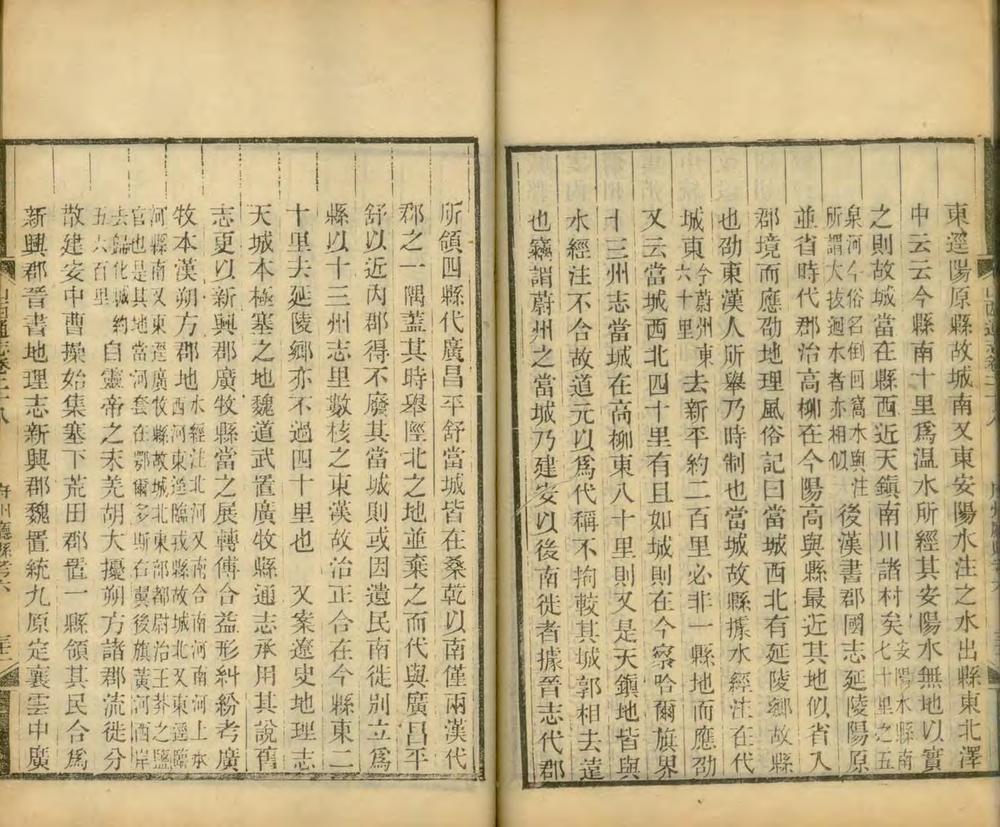 東逕陽原縣故城南又東安陽水注之水出縣東北澤
中云云今縣南十里爲温水所經其安陽水無地以實
之則故城當在縣西近天鎮南川諸村矣安陽水縣南七十里之五
泉河今俗名倒回窩水與注所謂大拔迴水者亦相似後漢書郡國志延陵陽原
並省時代郡治高柳在今陽高與縣最近其地似省入
郡境而應劭地理風俗記曰當城西北有延陵鄉故縣
也劭東漢人所舉乃時制也當城故縣據水經注在代
城東今蔚州東六十里去新平約二百里必非一縣地而應劭
又云當城西北四十里有且如城則在今察哈爾旗界
十三州志當城在高柳東八十里則又是天鎮地皆與
水經注不合故道元以爲代稱不拘較其城郭相去遠
也竊謂蔚州之當城乃建安以後南徙者據晉志代郡
所領四縣代廣昌平舒當城皆在桑乾以南僅兩漢代
郡之一隅蓋其時舉陘北之地並棄之而代與廣昌平
舒以近內郡得不廢其當城則或因遺民南徙別立爲
縣以十三州志里數核之東漢故治正合在今縣東二
十里去延陵鄉亦不過四十里也 又案遼史地理志
天城本極塞之地魏道武置廣牧縣通志承用其說舊
志更以新興郡廣牧縣當之展轉傅合益形糾紛考廣
牧本漢朔方郡地水經注北河又南合南河南河上承西河東逕臨戎縣故城北又東逕臨
河縣南又東逕廣牧縣故城北東部都尉治王莽之鹽官也是其地當河套在鄂爾多斯右翼後旗黃河西岸
去歸化城約五六百里自靈帝之末羌胡大擾朔方諸郡流徙分
散建安中曹操始集塞下荒田郡置一縣領其民合爲
新興郡晉書地理志新興郡魏置統九原定襄雲中廣